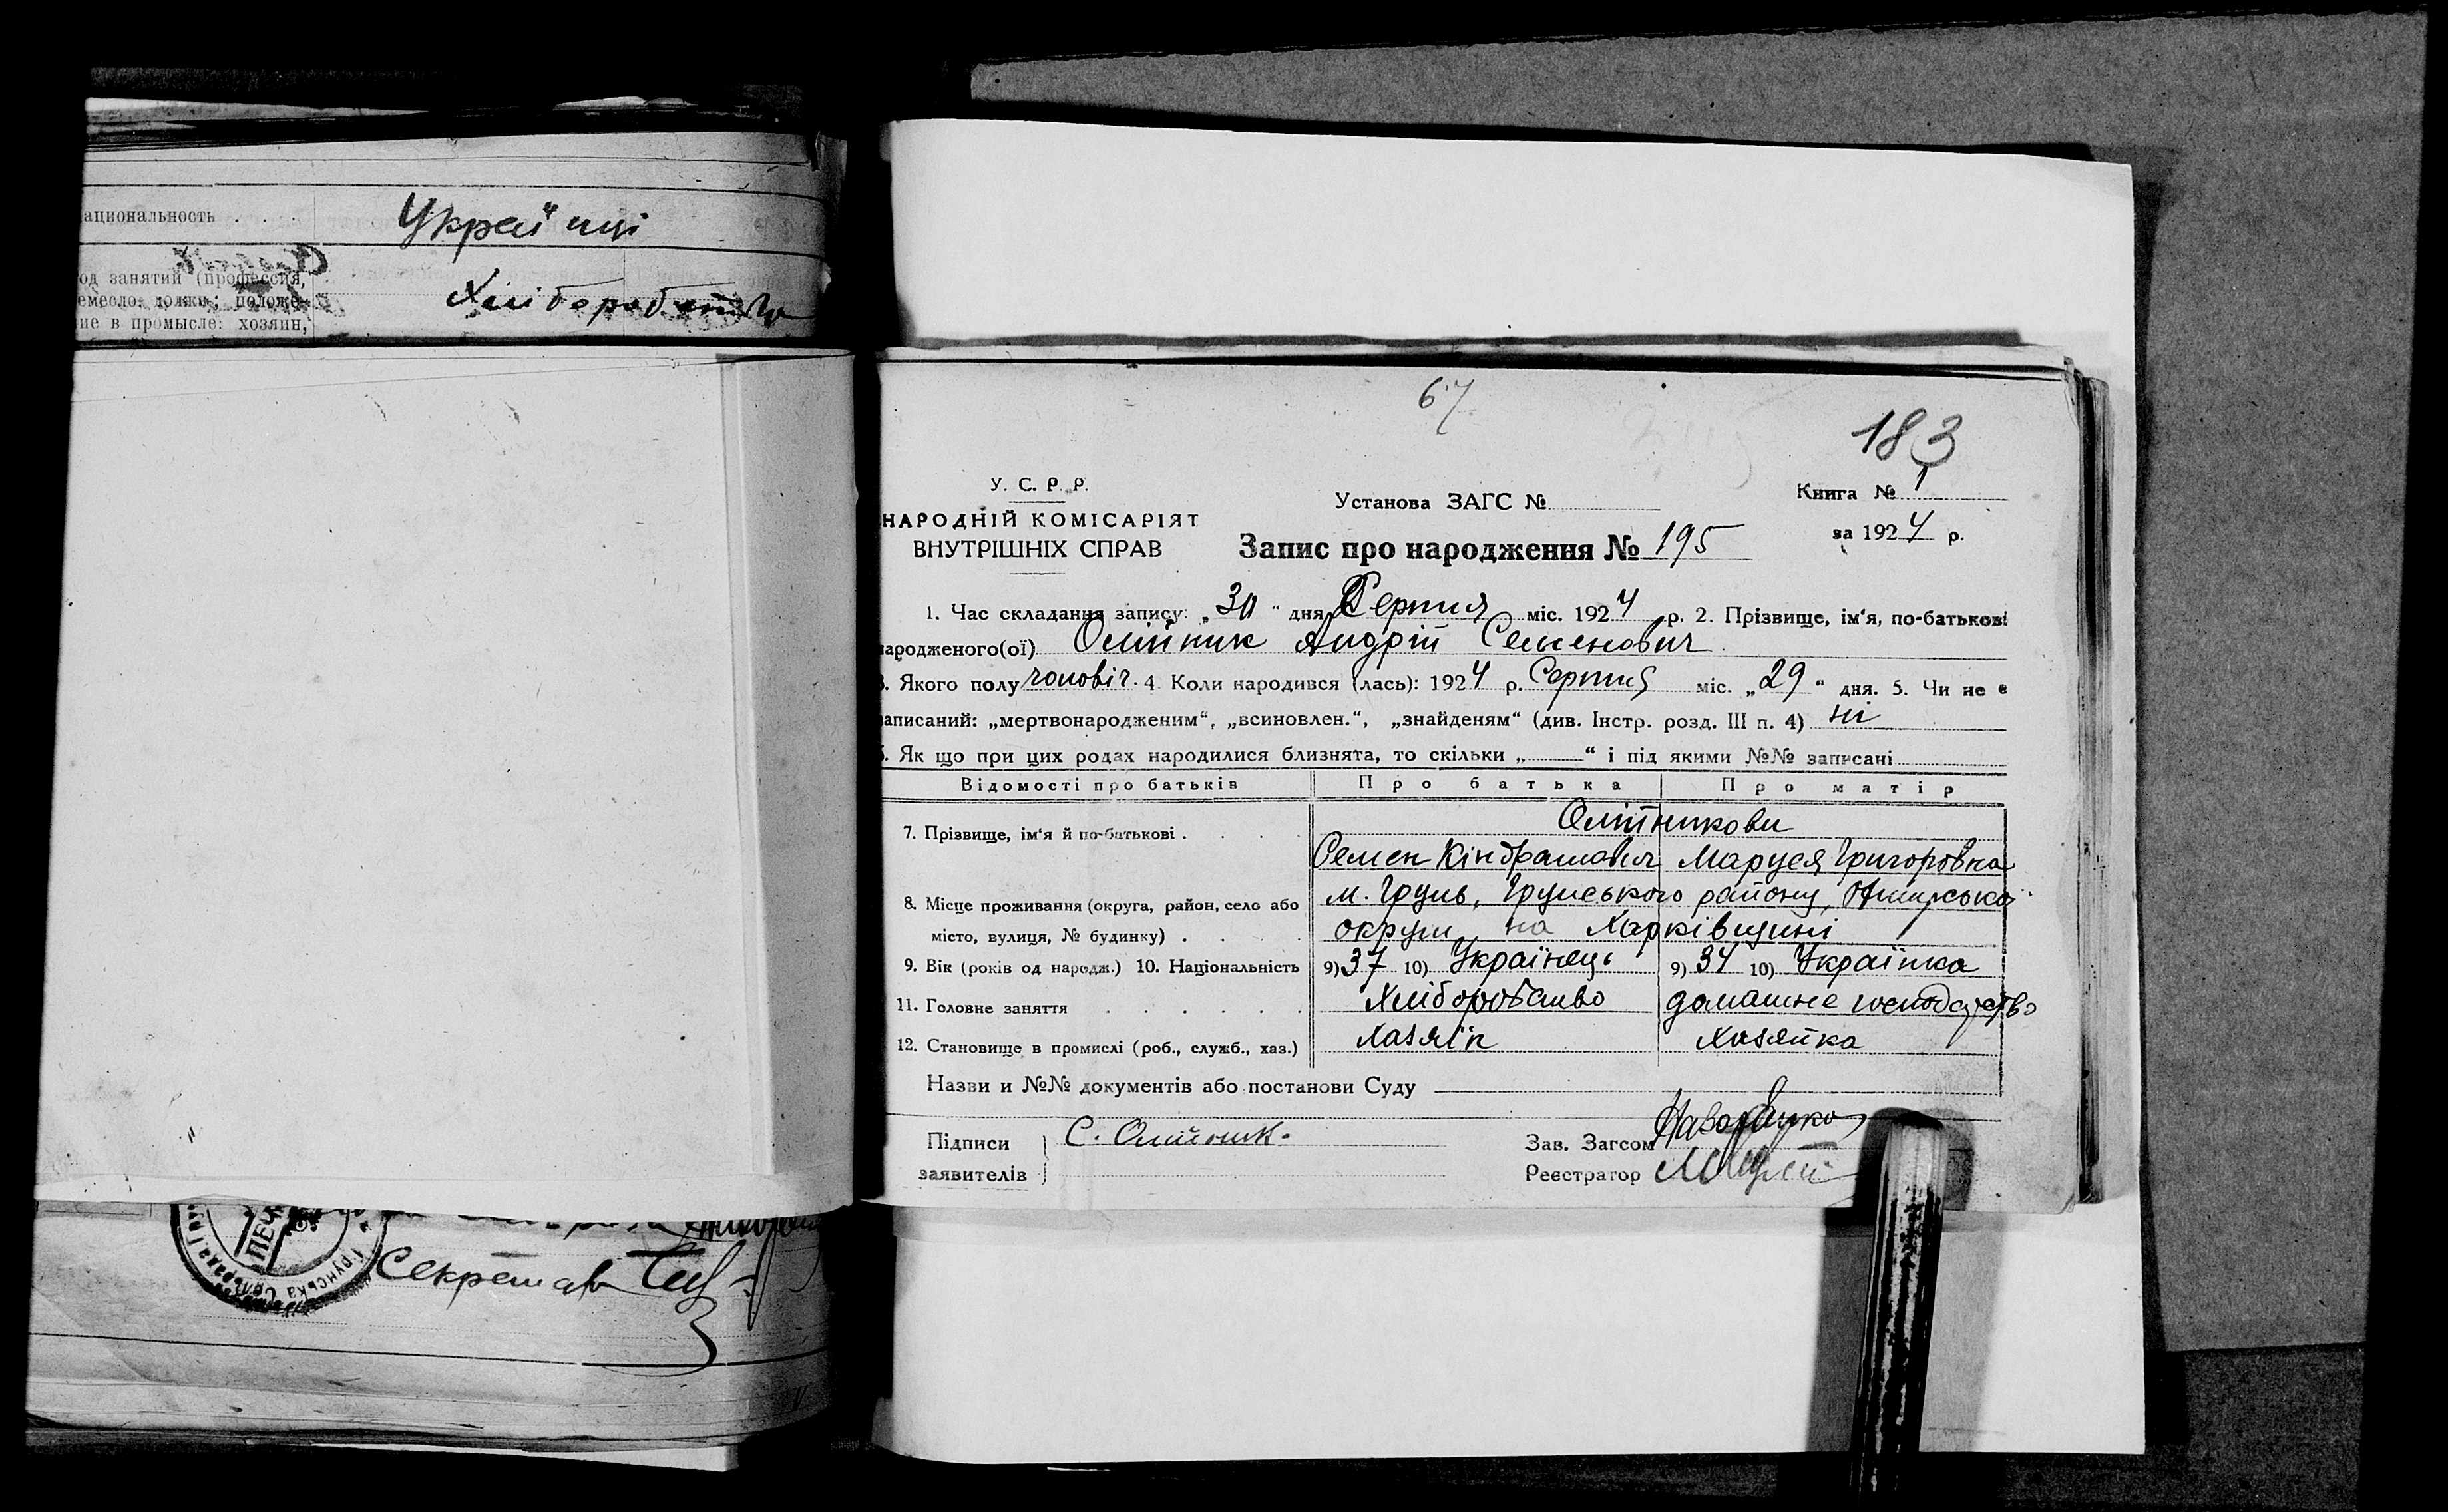 ациональность . . .
Україπці
од занятий (профессия,
емесло; должн.; положе-
ие в промысле: хозяин,
Хліборобство
Секретарь
67
183
У. С. Р. Р.
НАРОДНІЙ КОМІСАРІЯТ
ВНУТРІШНІХ СПРАВ
Установа ЗАГС №
Книга № 1
за 1924 р.
Запис про народження № 195
1. Час складання запису: „30“ дня Серпня міс. 1924 р. 2. Прізвище, ім‘я, по-батькові
народженого(ої) Олійник Андрій Семенович
3. Якого полу чоловіч. 4. Коли народився (лась): 1924 р. Серпня міс. „29“ дня. 5. Чи не є
записаний: „мертвонародженим“, „всиновлен.“, „знайденям“ (див. Інстр. розд. III п. 4) ні
6. Як що при цих родах народилися близнята, то скільки „——“ і під якими №№ записані
Відомості про батьків Про батька Про матір
7. Прізвище, ім‘я й по-батькові . . . Олійникови
Семен Кіндратович Маруся Григоровна
8. Місце проживання (округа, район, село або м. Грунь, Грунського району,
місто, вулиця, № будинку) . . . округи на Харківщині
9. Вік (років од народж.) 10. Національність 9) 37 10) Українець 9) 34 10) Українка
11. Головне заняття . . . . . Хліборобство домашнє господарство
12. Становище в промислі (роб., служб., хаз.) Хазяїн Хазяйка
Назви и №№ документів або постанови Суду
Підписи С. Олійник.
заявителів
Зав. Загсом
Реєстратор